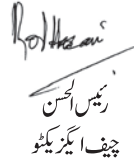 رئیس الحسن
چیف ایگزیکٹو